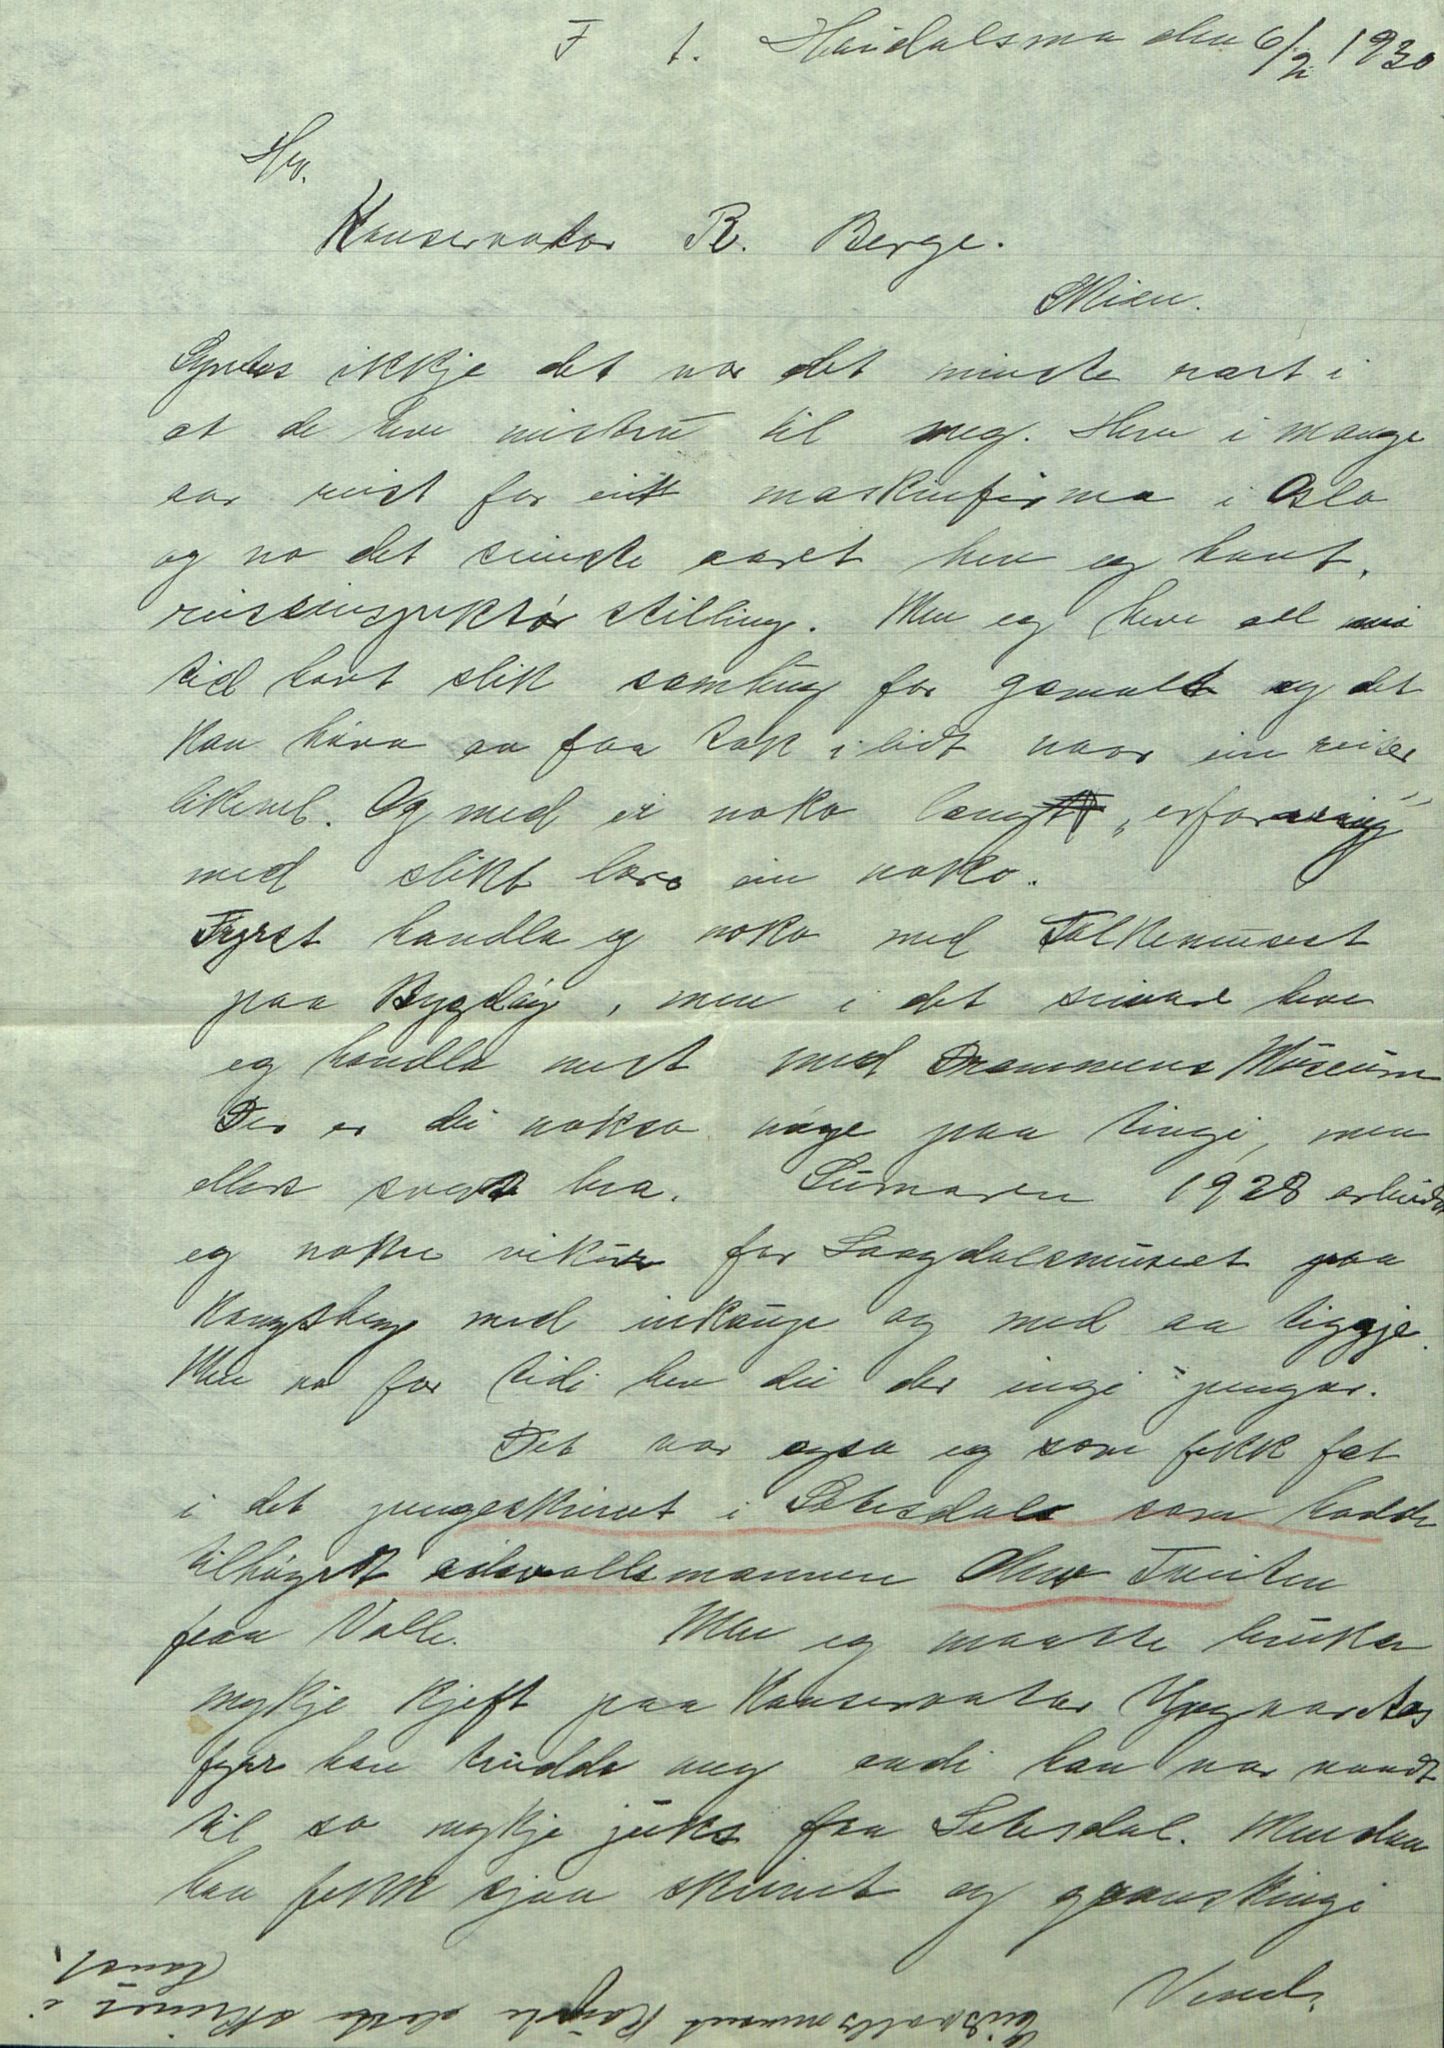 F t. Høidalsmo den 6/2 1930
Hr.
Konservator R. Berge.
Skien.
Synes ikkje det var det minste rart i
at de have mistru til meg. Have i mange
aar reist for eitt maskinfirma i Oslo
og no det siuste aaret hev eg havt
reiseinspektør stilling. Men eg heve all mi
tid havt slik samhug for gamalt og det
kan høva aa faa tak i lidt naar ein reiser
likevel. Og med ei noko lang "erfaring"
med slikt lærer ein noko.
Fyrst handla eg noko med Folkemuseet
paa Bygdøy, men i det seinare heve
eg handla mest med Drammens Museum
Der er dei nokso nøye paa tingi, men
ellers svert bra. Sumaren 1928 arbeidde
eg nokre vikur for Laagdalsmuseet paa
Kongsberg med inkaup og med aa tiggje.
Men no for tidi hev dei der ingi pengar.
Det var ogsa eg som fekk fat
i det pengeskrinet i Setesdal som hadde
tilhøyrdt eidsvollsmannen Olav Tveiten
fraa Valle. Men eg maatte bruka
mykje kjeft paa Konservator
fyrr han trudde meg andi han var vandt
til so mykje juks fraa Setesdal. Men daa
han fekk sjaa skrinet og granskingi
Vend.
Eidsvollsmuseet kaupte dette skrinet i
haust.